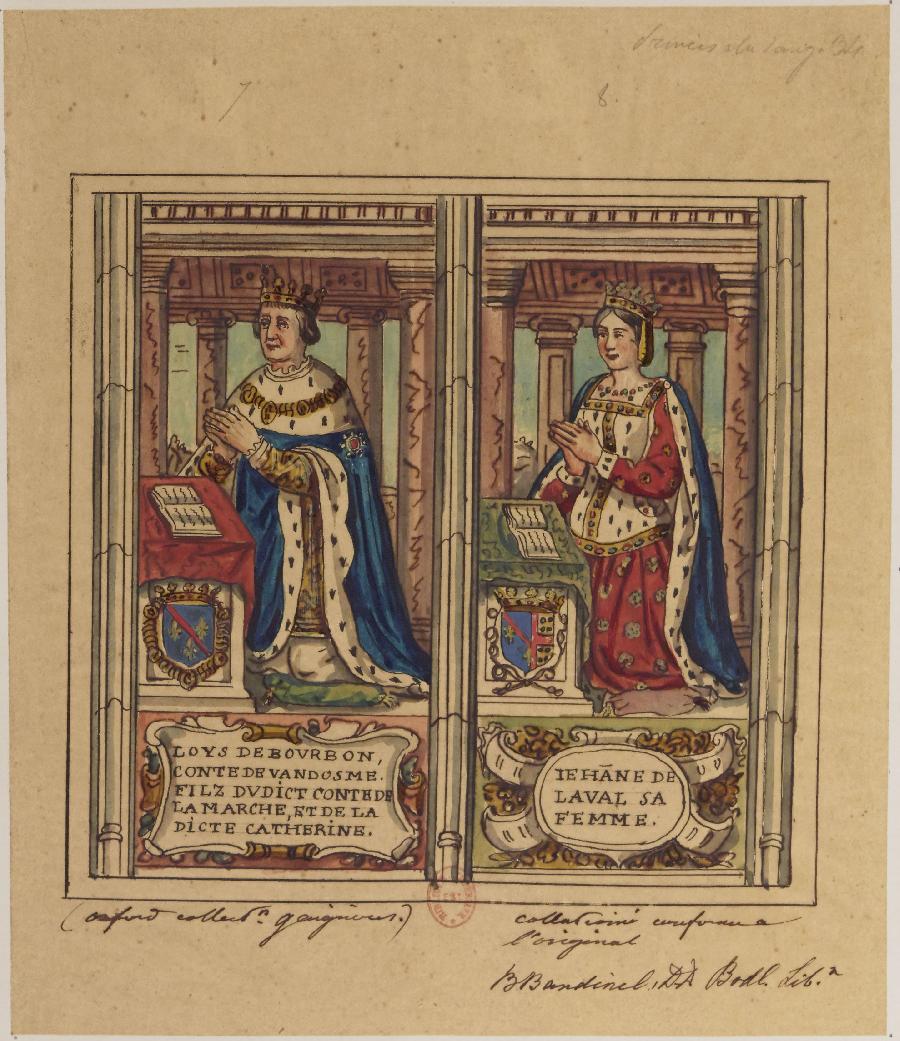 7
8.
LOYS DEBOVRBON,
CONTE DE VANDOSME.
FILZ DVDICT CONTE DE
LA MARCHE, ET DE LA
DICTE CATHERINE.
IEHĀNE DE
LAVAL SA
FEMME.
(oxford collectn gaignieres.)
collationé conforme a
l'original
B Bandinel, DD Bodl. Libn